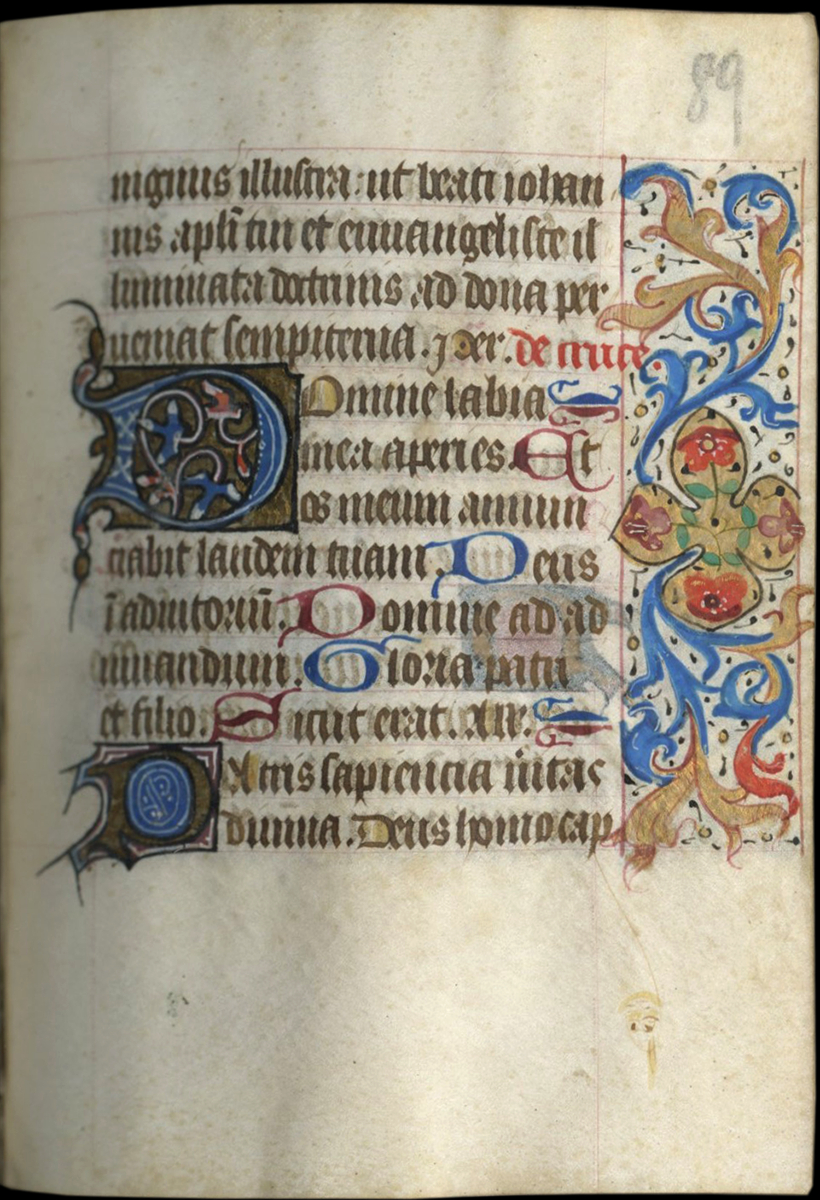 89
nignus illustra: ut beati iohan
nis apl̄i tui et euuangeliste il
luminata doctrinis ad dona per
ueniat sempiterna. per. de cruce.
Domine labia
mea aperies. Et
os meum annun
ciabit laudem tuam. Deus
ī adiutoriū. Domine ad ad
iuuandum. Gloria patri
et filio. Sicut erat.
PAtris sapiencia ūitas
diuina. Deus homo cap